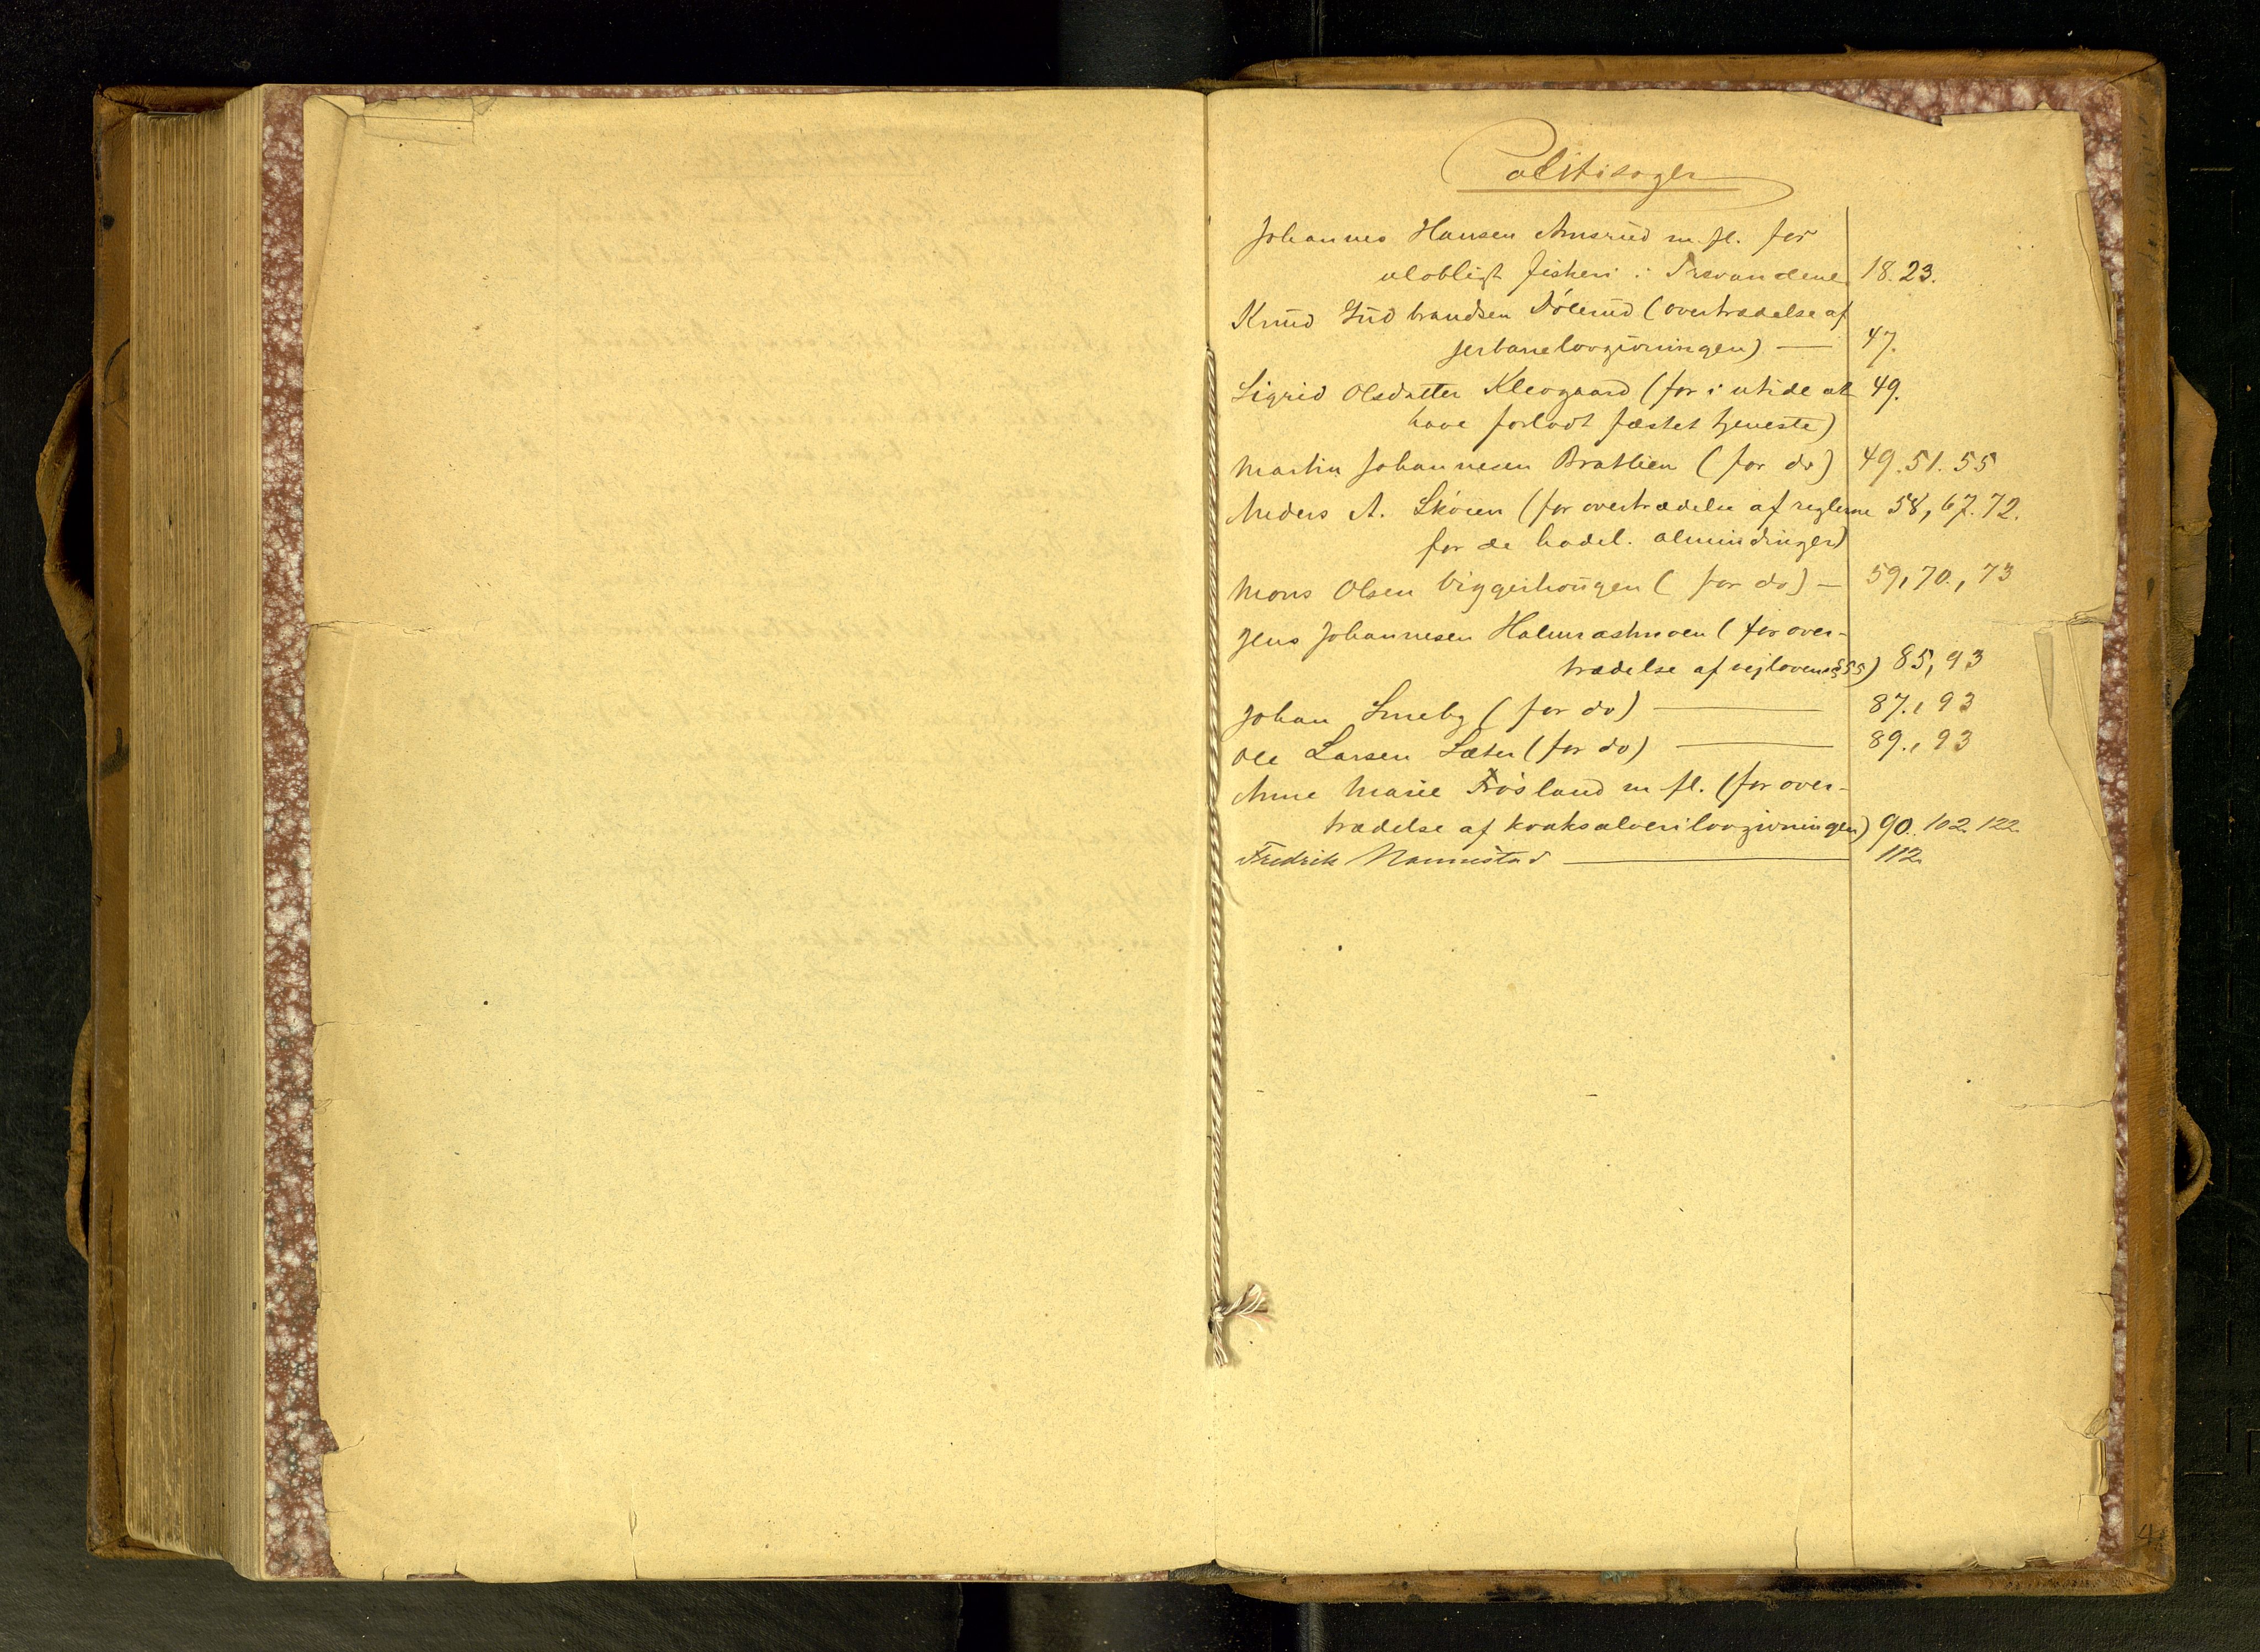 Politisager
Johannes Hansen Amsrud m. fl. for
ulovligt fiskeri i Trevandene 18. 23.
Knud Gudbrandsen Dölerud (overtrædelse af
jerbanelovgivningen) — 47.
Sigrid Olsdatter Klevgaard (for i utide at 49.
have forladt fæstet tjeneste)
Martin Johannesen Bratlien (for do) 49. 51. 55
Anders A. Sköien (for overtrædelse af reglerne 58, 67. 72.
for de hadel. almindinger)
Mons Olsen Viggerhougen (for do) — 59, 70., 73
Jens Johannesen Halmrastmoen (for over-
trædelse af vejlovens §55) 85, 93
Johan Smeby (for do) — 87., 93
Ole Larsen Sæter (for do) — 89., 93
Anne Marie Frösland m fl. (for over-
trædelse af kvaksalverilovgivningen) 90. 102. 122
Fredrik Nannestad — 112.
4